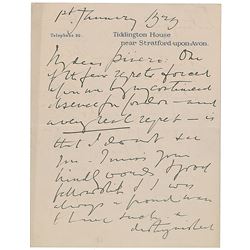 1st January 1929
Telephone 80.
Tiddington House
near Stratford-upon-Avon.
My dear Pinero. One
of the few regrets forced
upon me by my continued
absence from London - and
a very real regret - is
that I don't see
you. I miss your
kindly words & good
fellowship & I was
always a proud man
to have such a
distinguished